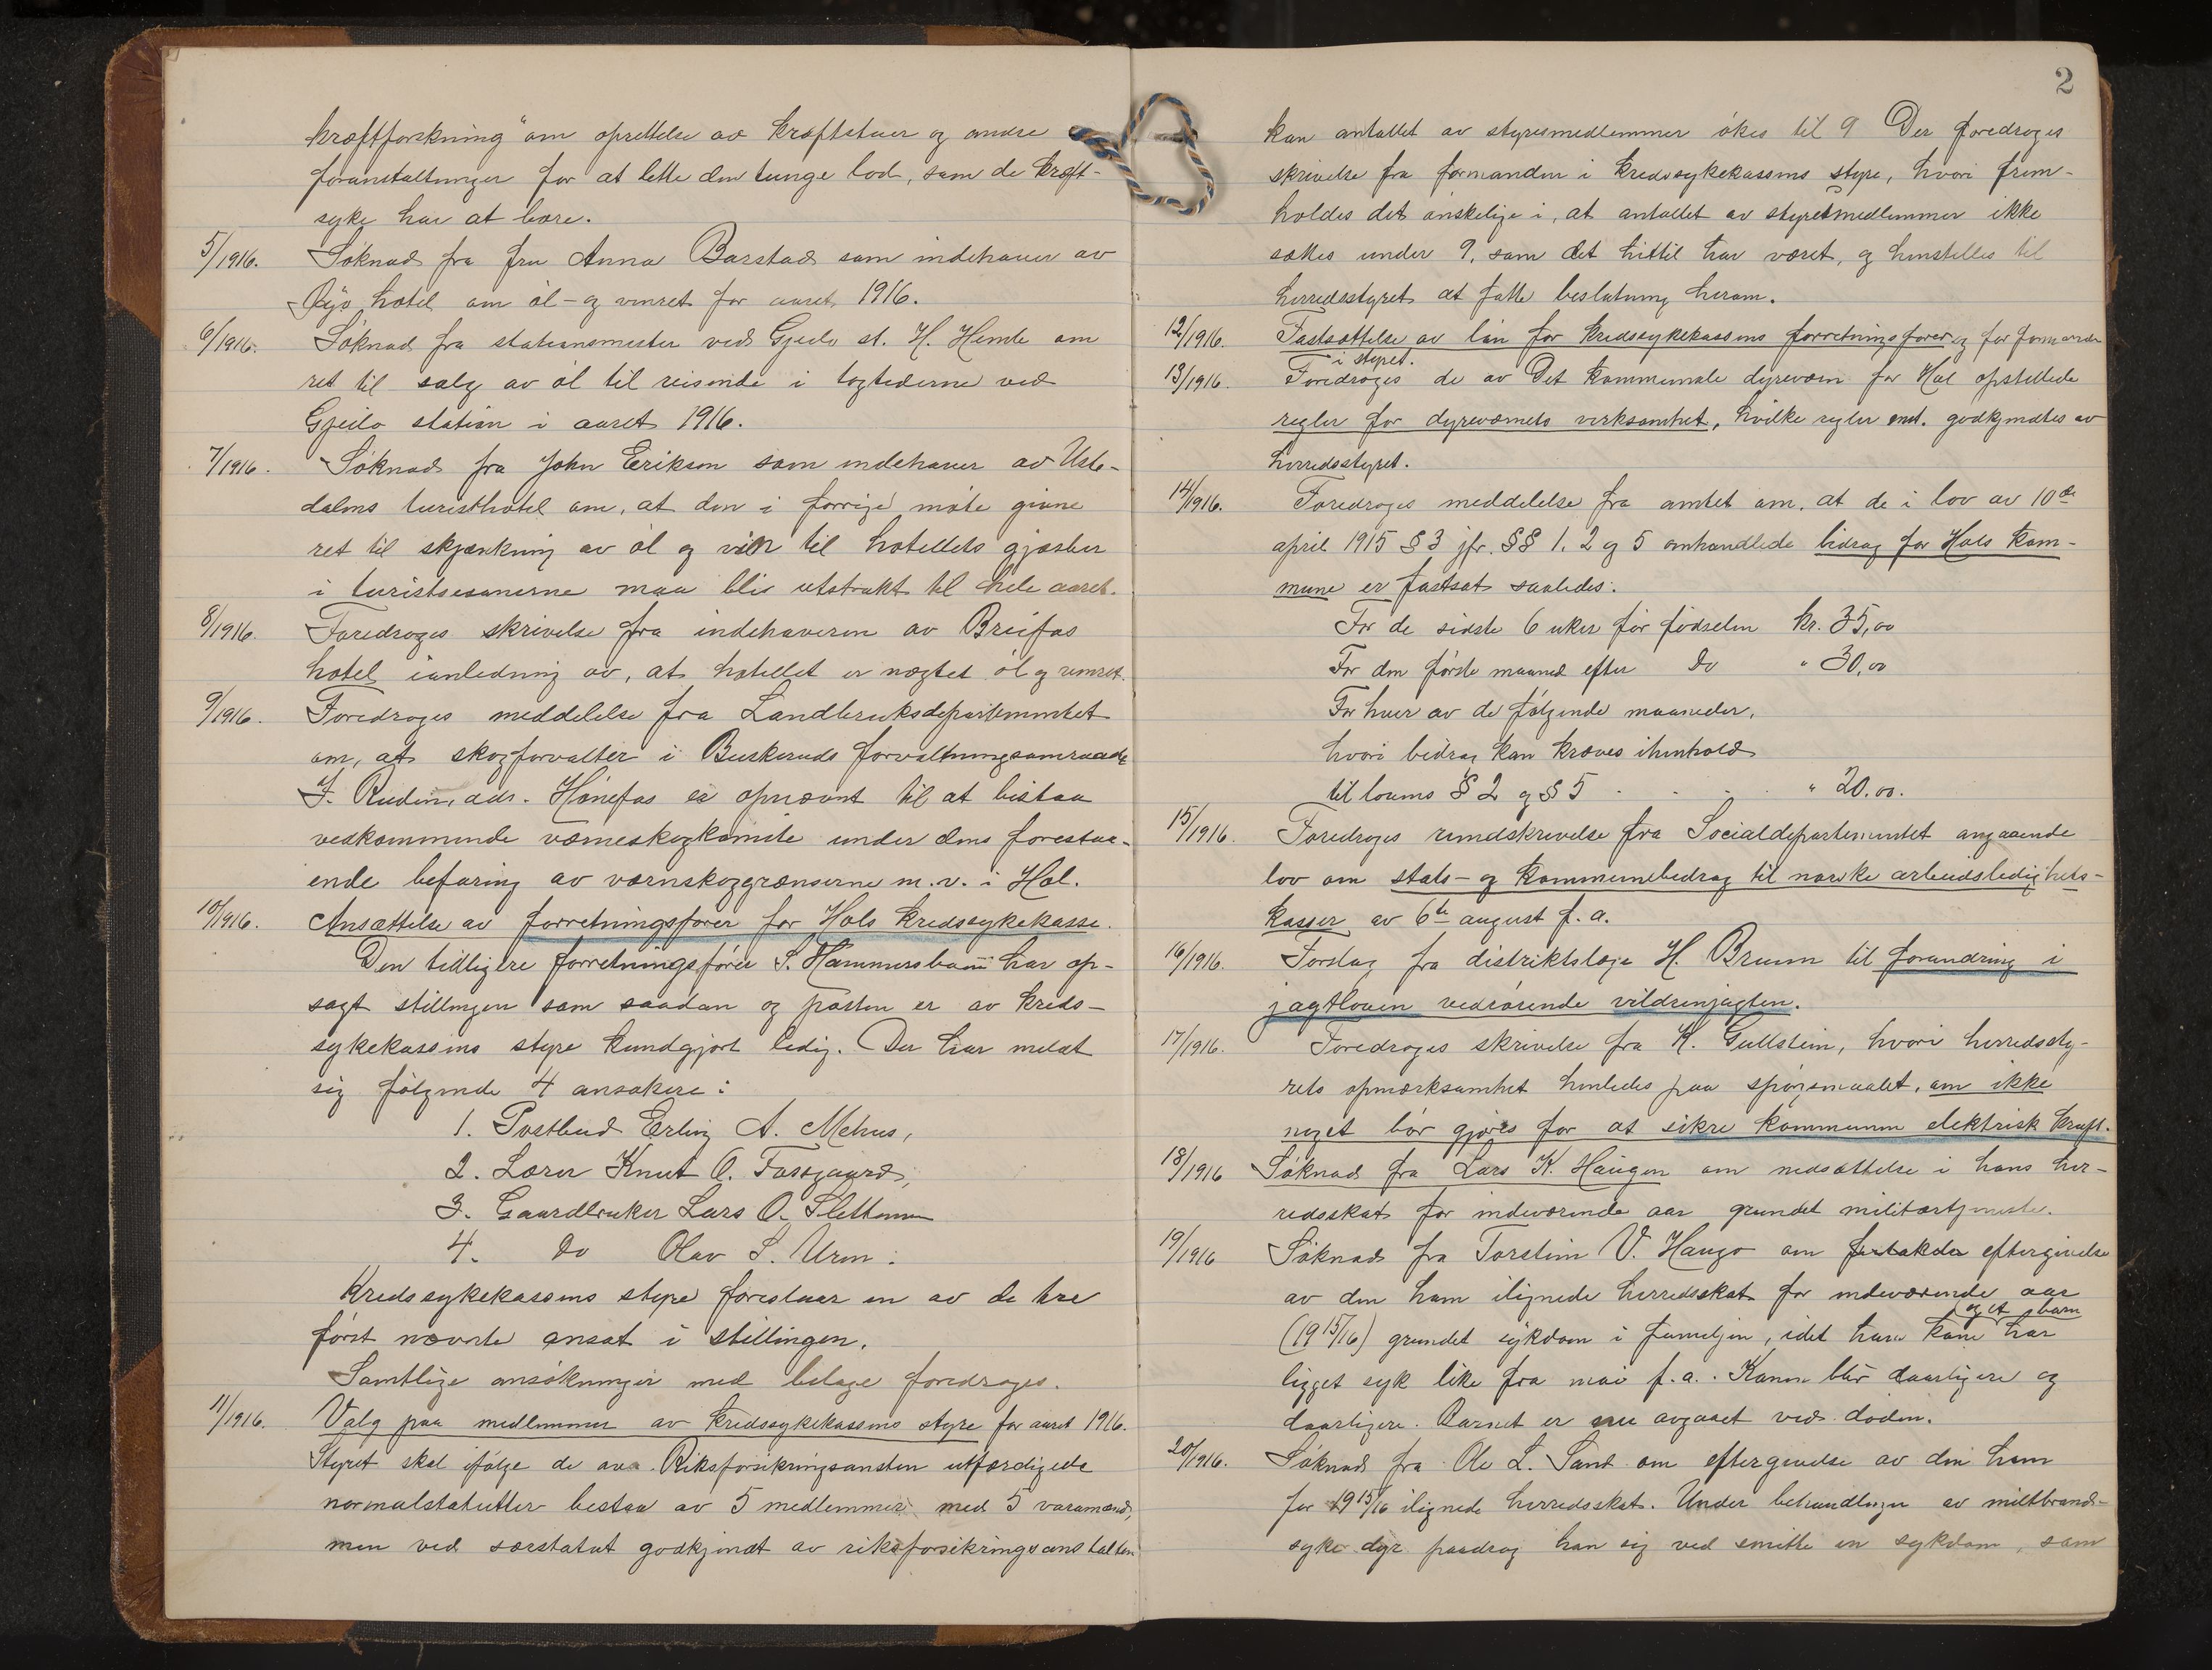 kræftforskning" om oprettelse av kræftstuer og andre
foranstaltninger for at lette den tunge lod, som de kræft-
syke har at bære.
5/1916. Søknad fra fru Anna Barstad som indehaver av
hotel om øl- og vinret for aaret 1916.
6/1916. Søknad fra stationsmester ved Gjeilo st. H. Hemle om
ret til salg av øl til reisende i togtiderne ved
Gjeilo station i aaret 1916.
7/1916. Søknad fra John Erikson som indehaver av Uste-
dalens turisthotel om, at den i forrige møte givne
ret til skjænkning av øl og vin til hotellets gjæster
i turistsesonerne maa bli utstrakt til hele aaret.
8/1916. Foredroges skrivelse fra indehaveren av Breifos
hotel i anledning av, at hotellet er nægtet øl og vinret.
9/1916. Foredroges meddelelse fra Landbruksdepartementet
om, at skogforvalter i Buskeruds forvaltningsomraade
J. Ruden, adr. Hønefos er opnævnt til at bistaa
vedkommende værneskogkomite under dens forestaa-
ende befaring av værnskoggrænserne m.v. i Hol.
10/1916. Ansættelse av forretningsfører for Hols kredssykekasse.
Den tidligere forretningsfører S. Hammersbøen har op-
sagt stillingen som saadan og posten er av kreds-
sykekassens styre kundgjort ledig. Der har meldt
sig følgende 4 ansøkere:
1. Postbud Erling A. Mehus,
2. Lærer Knut O. Fossgaard,
3. Gaardbruker Lars O. Slettemoen
4. Do Olav S. Uren.
Kredssykekassens styre foreslaar en av de tre
først nævnte ansat i stillingen.
Samtlige ansøkninger med bilage foredroges.
11/1916. Valg paa medlemmer av kredssykekassens styre for aaret 1916.
Styret skal ifølge de av Riksforsikringsansten utfærdigede
normalstatutter bestaa av 5 medlemmer med 5 varamænd,
men ved særstatut godkjendt av riksforsikringsanstalten
2
kan antallet av styresmedlemmer økes til 9 Der foredroges
skrivelse fra formanden i kredssykekassens styre, hvori frem-
holdes det ønskelige i, at antallet av styresmedlemmer ikke
sættes under 9, som det hittil har været, og henstilles til
herredsstyret at fatte beslutning herom.
12/1916. Fastsættelse av løn for kredssykekassens forretningsfører og for formanden
i styret.
13/1916. Foredroges de av Det kommunale dyreværn for Hol opstillede
regler for dyreværnets virksomhet, hvilke regler enst. godkjendtes av
herredsstyret.
14/1916. Foredroges meddelelse fra amtet om, at de i lov av 10de
april 1915 § 3 jfr. §§ 1, 2 og 5 omhandlede bidrag for Hols kom-
mune er fastsat saaledes:
For de sidste 6 uker før fødselen kr. 35,00
For den første maaned efter Do " 30,00
For hver av de følgende maaneder,
hvori bidrag kan kræves i henhold
til lovens § 2 og § 5 . . . . " 20.00.
15/1916. Foredroges rundskrivelse fra Socialdepartementet angaaende
lov om stats- og kommunebidrag til norske arbeidsledighets-
kasser av 6te august f.a.
16/1916. Forslag fra distriktslæge H. Bruun til forandring i
jagtloven vedrørende vildrenjagten.
17/1916. Foredroges skrivelse fra K. Gullstein, hvori herredssty-
rets opmerksomhet henledes paa spørsmaalet, om ikke
noget bør gjøres for at sikre kommunen elektrisk kraft.
18/1916 Søknad fra Lars K. Haugen om nedsættelse i hans her-
redsskat for indeværende aar grundet militærtjeneste.
19/1916 Søknad fra Torstein V. Haugo om eftergivelse
av den ham ilignede herredsskat for indeværende aar
og et barn
(1915/16) grundet sykdom i familjen, idet hans kone har
ligget syk like fra mai f.a.. Konen blir daarligere og
daarligere. Barnet er nu avgaaet ved døden.
20/1916. Søknad fra Ole L. Sant om eftergivelse av den ham
for 1915/16 ilignede herredsskat. Under behandlingen av miltbrand-
syke dyr paadrog han sig ved smitte en sykdom, som